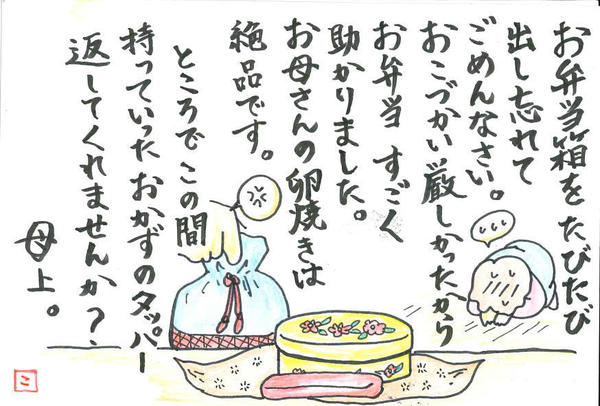 お弁当箱をたびたび
出し忘れて
ごめんなさい。
おこづかい厳しかったから
お弁当 すごく
助かりました。
お母さんの卵焼きは
絶品です。
ところで この間
持っていったおかずのタッパー
返してくれませんか?
母上。
こ